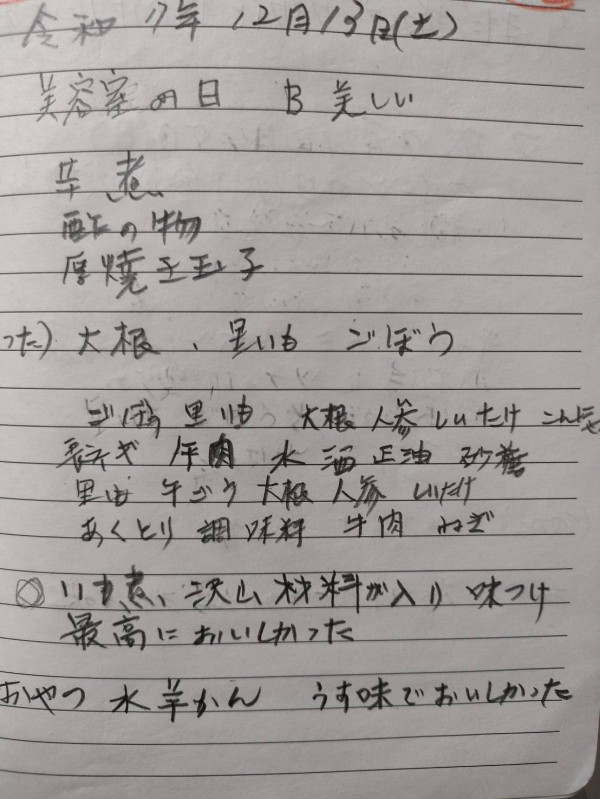 令和7年12月13日(土)
美容室の日 B 美しい
芋煮
酢の物
厚焼き玉子
った) 大根、里いも ごぼう
ごぼう 里いも 大根 人参 しいたけ こんにゃ
ネギ 牛肉 水 酒 正油 砂糖
里いも 牛ごう 大根 人参 しいたけ
あくとり 調味料 牛肉 ねぎ
◎ いも煮、沢山材料が入り 味つけ
最高においしかった
おやつ 水羊かん うす味でおいしかった